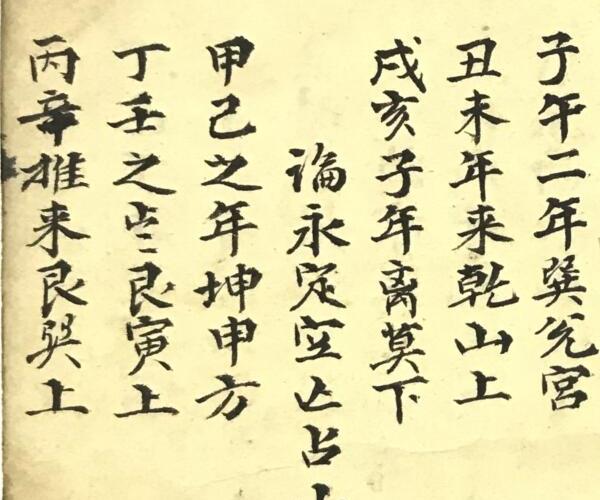 子午二年巽兊宮
丑未年来乾山上
戌亥子年离莫下
論永定空亡占
甲己之年坤申方
丁壬之 艮寅上
丙辛推来艮巽上